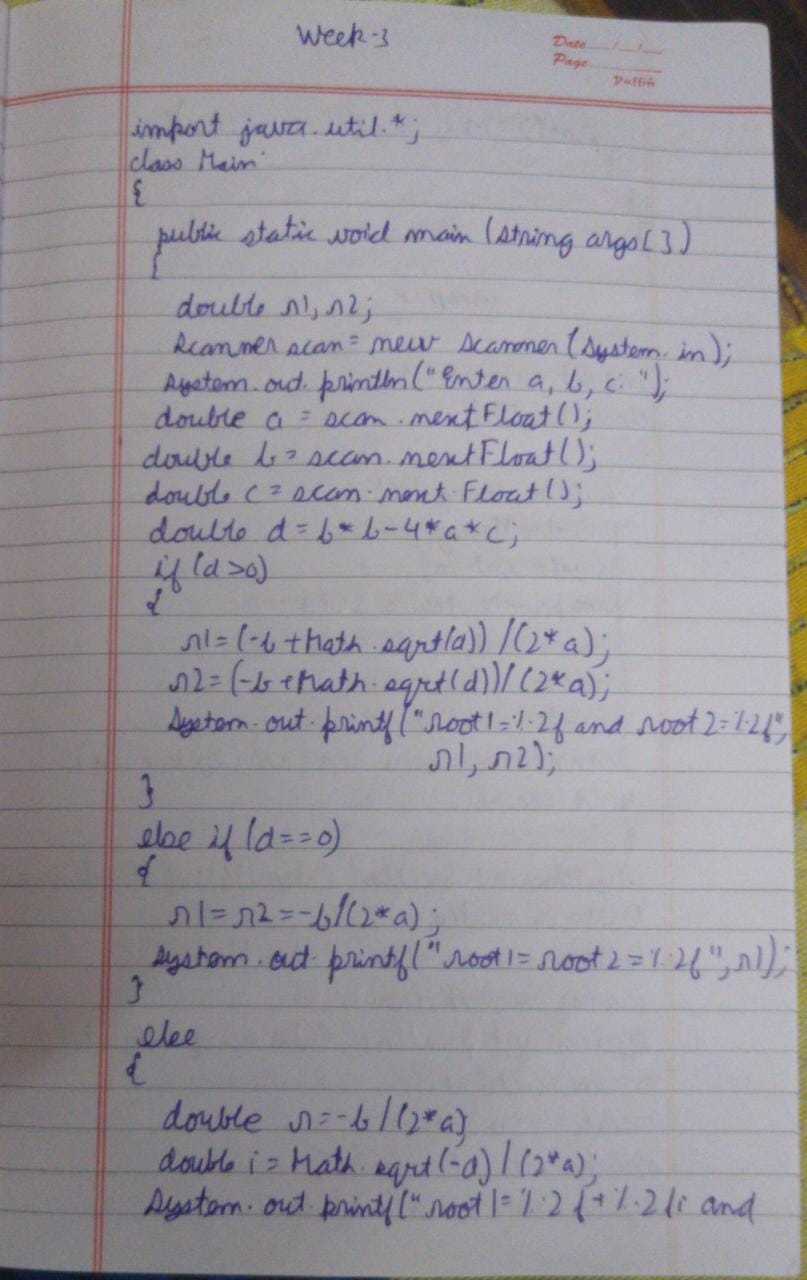 Week-3
Date __/__/__
Page
Duffin
import java.util.*;
class Main
{
public static void main (String args[])
{
double r1, r2;
Scanner scan = new Scanner (System.in);
System.out.println("Enter a, b, c: ");
double a = scan.nextFloat();
double b = scan.nextFloat();
double c = scan.next.Float();
double d = b*b-4*a*c;
if (d>0)
{
r1=(-b+Math.sqrt(d))/(2*a);
r2=(-b+Math.sqrt(d))/(2*a);
System.out.printf("root1=%.2f and root2=%.2f",
r1, r2);
}
else if (d==0)
{
r1=r2=-b/(2*a);
System.out.printf("root1=root2=%.2f",r1);
}
else
{
double r=-b/(2*a);
double i=Math.sqrt(-d)/(2*a);
System.out.printf("root1=%.2f+%.2fi and